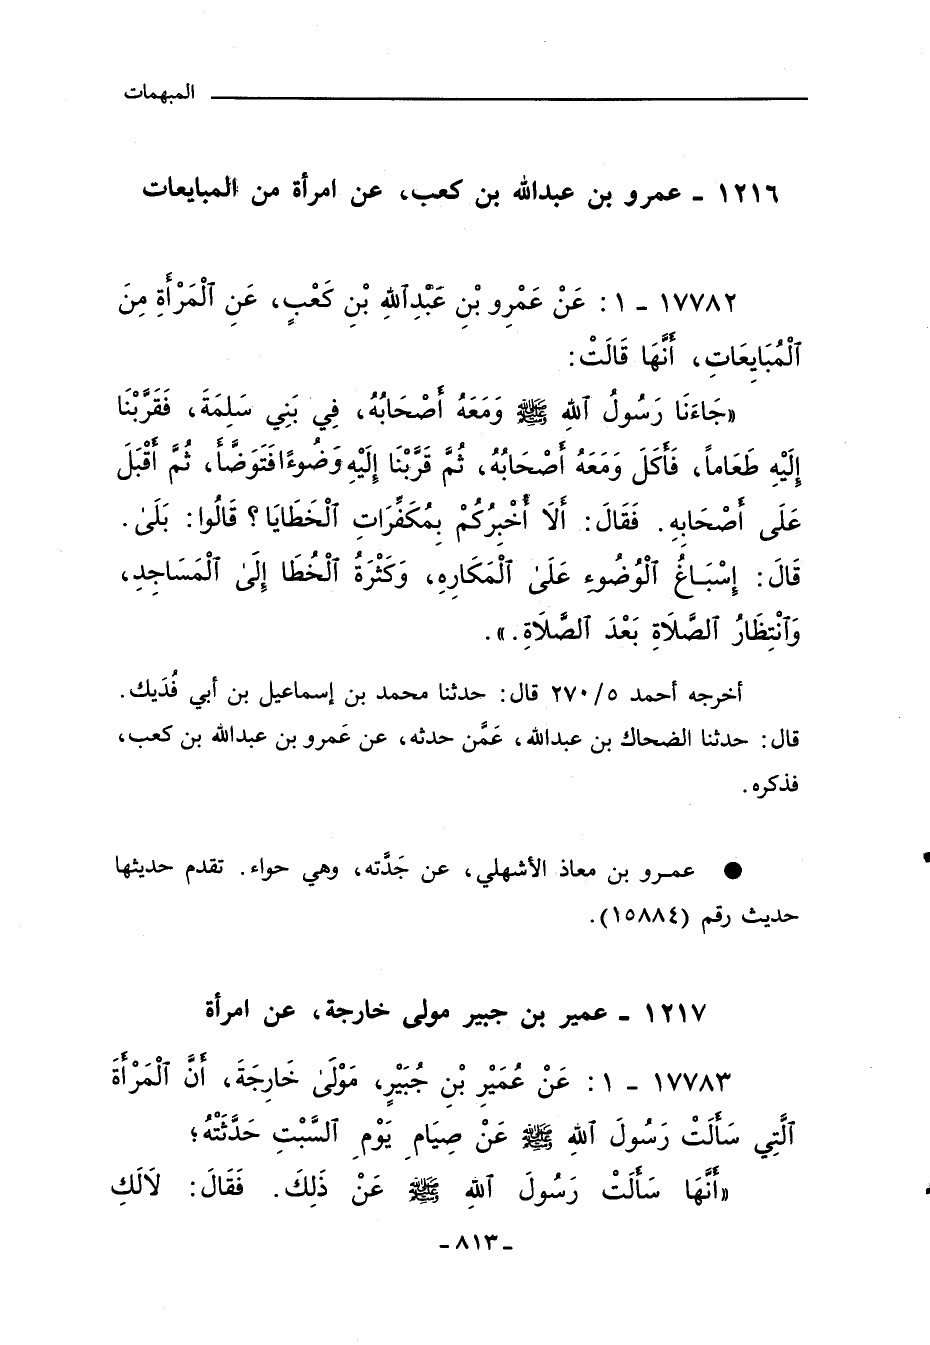 المبهمات
١٢١٦ - عمرو بن عبدالله بن كعب، عن امرأة من المبايعات
١٧٧٨٢ - ١: عَنْ عَمْرِو بْنِ عَبْدِٱللهِ بْنِ كَعْبٍ، عَنِ ٱلْمَرْأَةِ مِنَ
ٱلْمُبَايِعَاتِ، أَنَّهَا قَالَتْ:
«جَاءَنَا رَسُولُ ٱللهِ ﷺ وَمَعَهُ أَصْحَابُهُ، فِي بَنِي سَلِمَةَ، فَقَرَّبْنَا
إِلَيْهِ طَعَاماً، فَأَكَلَ وَمَعَهُ أَصْحَابُهُ، ثُمَّ قَرَّبْنَا إِلَيْهِ وَضُوءًا فَتَوَضَّأَ، ثُمَّ أَقْبَلَ
عَلَى أَصْحَابِهِ. فَقَالَ: أَلَا أُخْبِرُكُمْ بِمُكَفِّرَاتِ ٱلْخَطَايَا؟ قَالُوا: بَلَىٰ.
قَالَ: إِسْبَاغُ ٱلْوُضُوءِ عَلَىٰ ٱلْمَكَارِهِ، وَكَثْرَةُ ٱلْخُطَا إِلَىٰ ٱلْمَسَاجِدِ،
وَٱنْتِظَارُ ٱلصَّلَاةِ بَعْدَ ٱلصَّلَاةِ.».
أخرجه أحمد ٥/ ٢٧٠ قال: حدثنا محمد بن إسماعيل بن أبي فُدَيك.
قال: حدثنا الضحاك بن عبدالله، عَمَّن حدثه، عن عَمرو بن عبدالله بن كعب،
فذكره.
● عمرو بن معاذ الأشهلي، عن جَدَّته، وهي حواء. تقدم حديثها
حديث رقم (١٥٨٨٤).
١٢١٧ - عمير بن جبير مولى خارجة، عن امرأة
١٧٧٨٣ - ١: عَنْ عُمَيْرِ بْنِ جُبَيْرٍ، مَوْلَىٰ خَارِجَةَ، أَنَّ ٱلْمَرْأَةَ
ٱلَّتِي سَأَلَتْ رَسُولَ ٱللهِ ﷺ عَنْ صِيَامِ يَوْمِ ٱلسَّبْتِ حَدَّثَتْهُ؛
«أَنَّهَا سَأَلَتْ رَسُولَ ٱللهِ ﷺ عَنْ ذَلِكَ. فَقَالَ: لَالَكِ
- ٨١٣ -